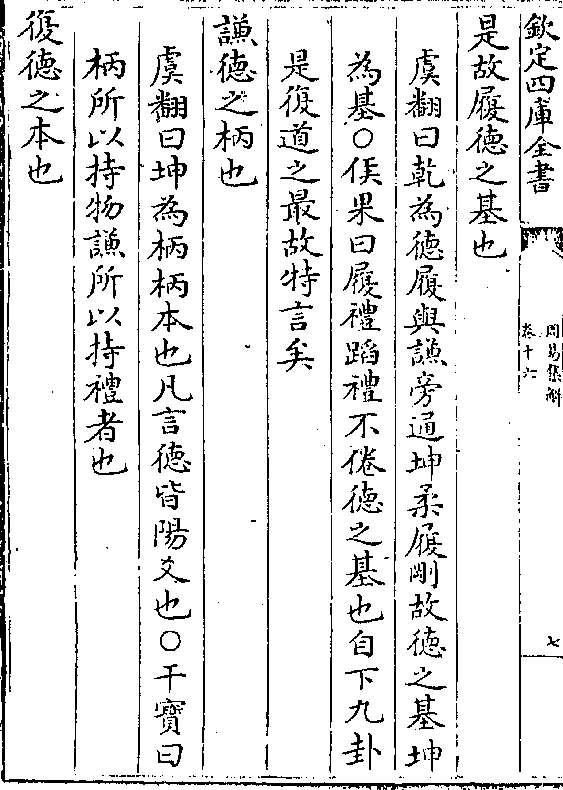 欽定四庫全書
周易集解
卷十六
七
是故履德之基也
虞翻曰乾為德履與謙旁通坤柔履剛故德之基坤
為基○侯果曰履禮蹈禮不倦德之基也自下九卦
是復道之最故特言矣
謙德之柄也
虞翻曰坤為柄柄本也凡言德皆陽爻也○干寶曰
柄所以持物謙所以持禮者也
復德之本也